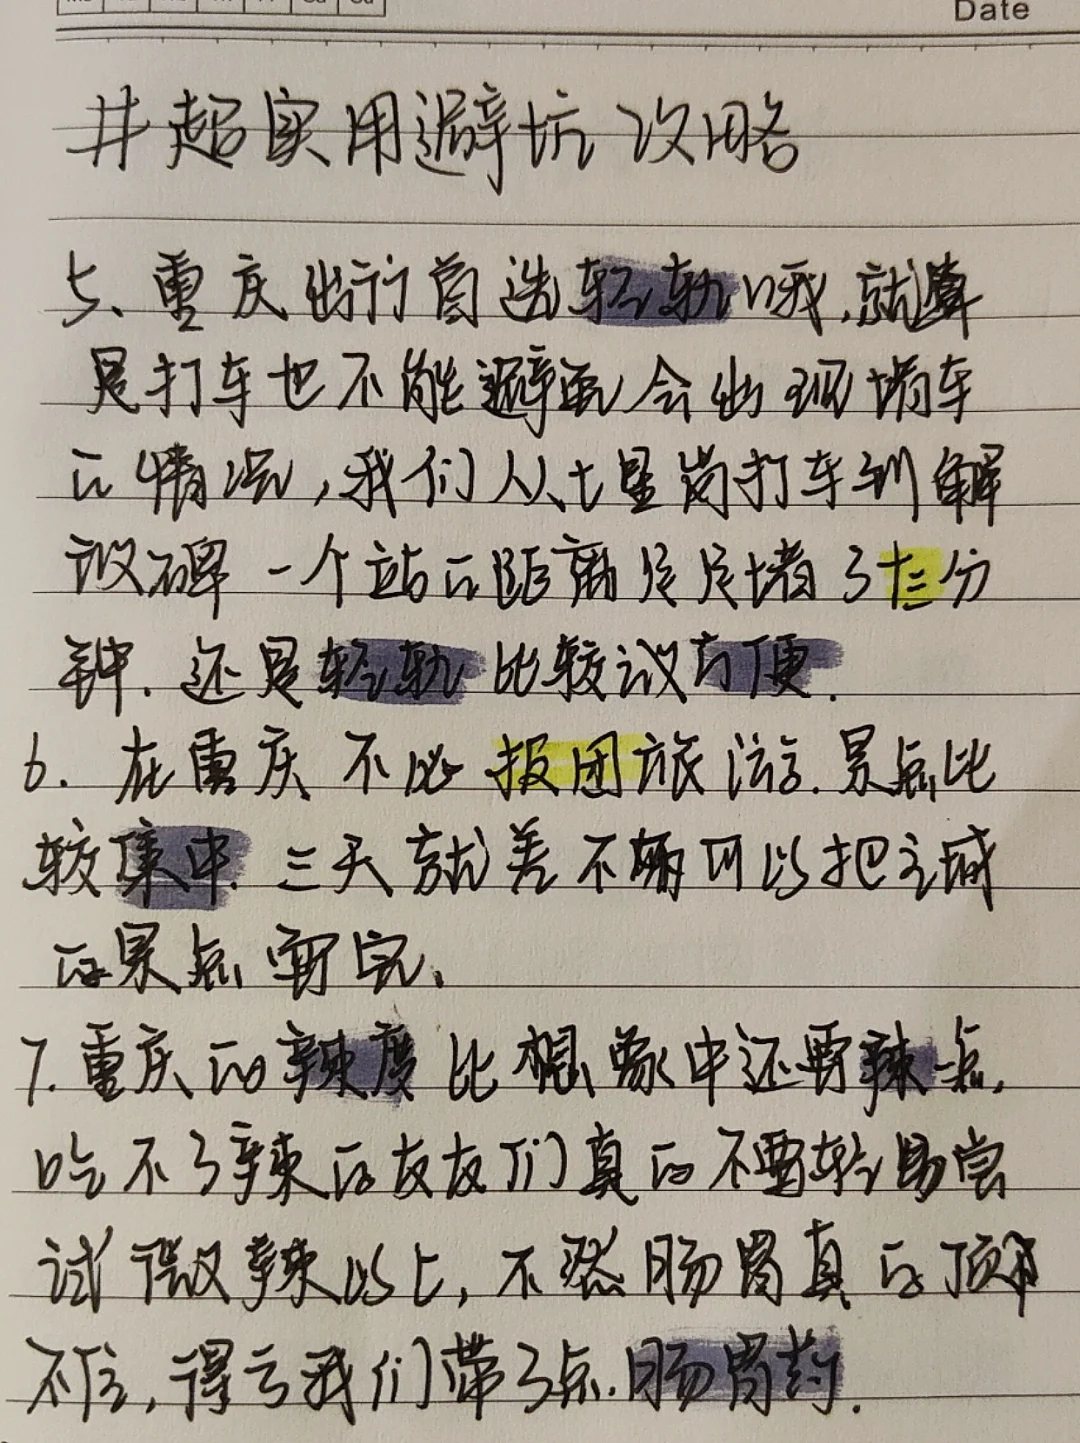 Date
#超实用避坑攻略
5、重庆出行首选轻轨哦,就算
是打车也不能避免会出现堵车
的情况,我们从七星岗打车到解
放碑一个站的距离足足堵了十三分
钟.还是轻轨比较议方便.
6.在重庆不必报团旅游.景点比
较集中.三天就差不多可以把主城
的景点耍完、
7.重庆的辣度比想象中还要辣一点.
吃不了辣的友友们真的不要轻易尝
试微辣以上,不然肠胃真的顶
不住,得亏我们带了点.肠胃药.